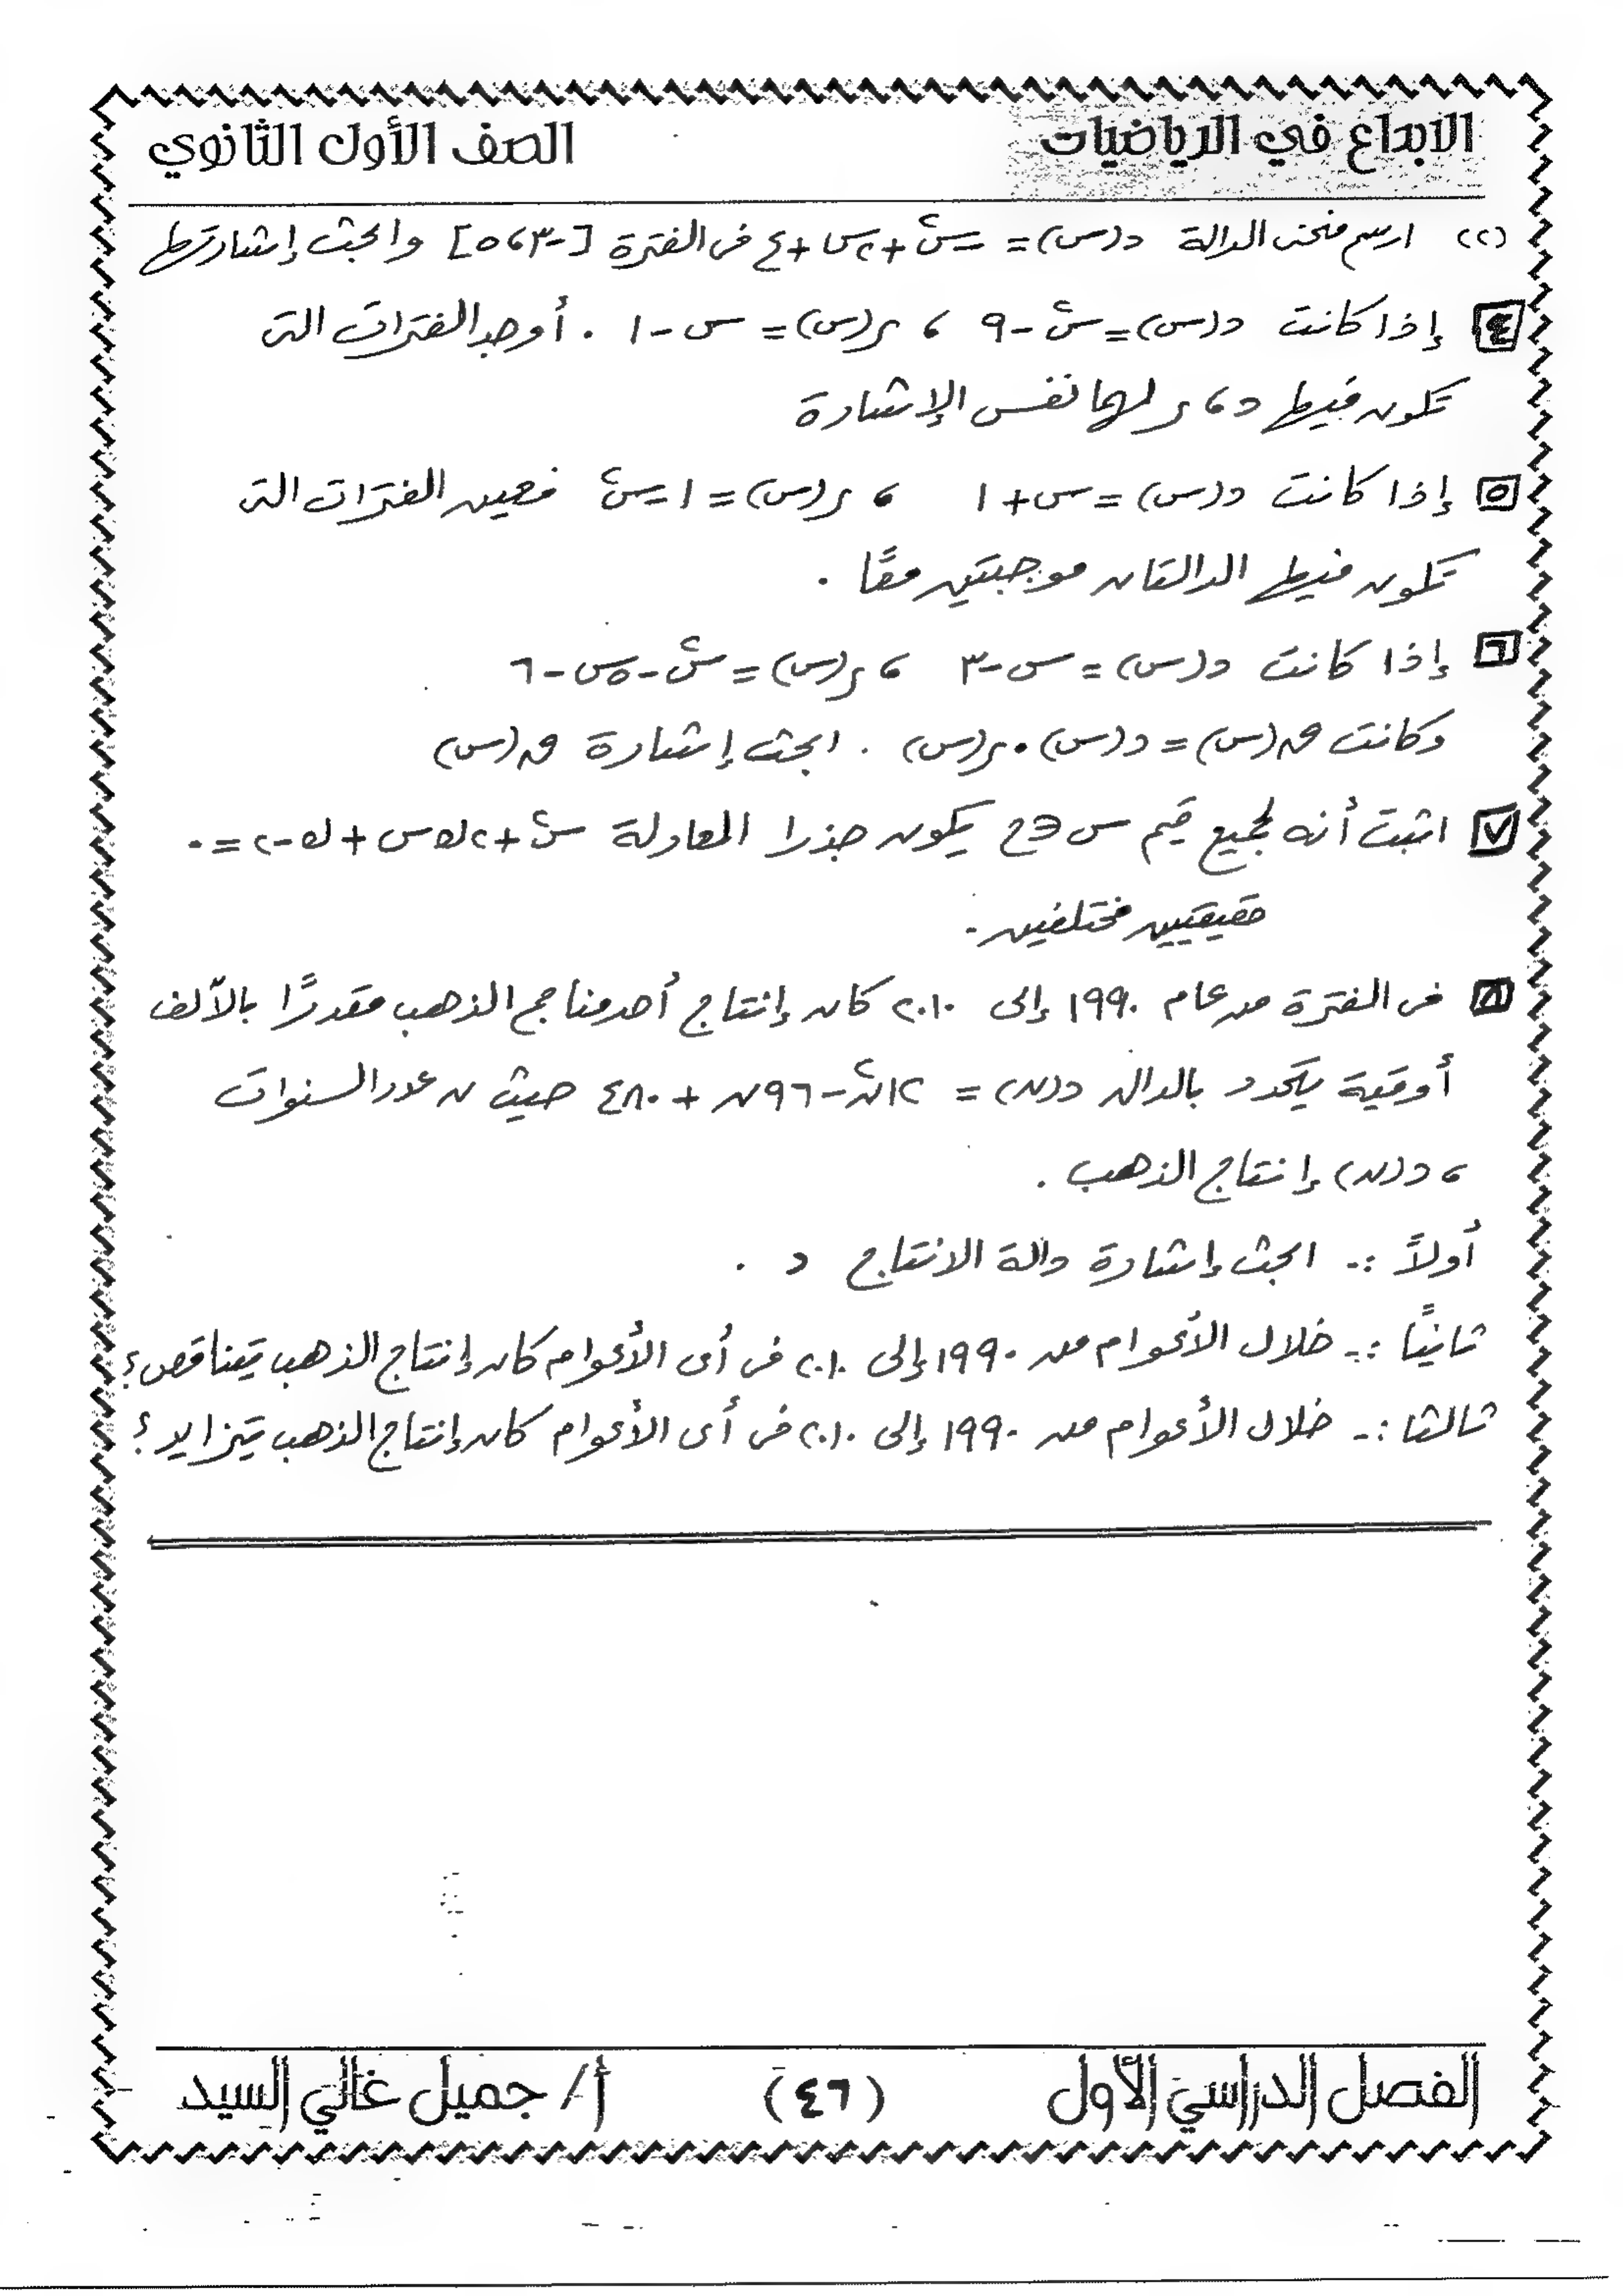 الابداع في الرياضيات
الصف الأول الثانوي
(٢٢) ارسم منحنى الدالة د(س) = -س٢ + ٢س + ٤ فى الفترة [-٣، ٥] وابحث إشارتها
٤ إذا كانت د(س) = س٢ - ٩ ، ر(س) = س - ١ . أوجد الفترات التى
تكون فيها د ، ر لهما نفس الإشارة
٥ إذا كانت د(س) = س + ١ ، ر(س) = ١ - س٢ فعين الفترات التى
تكون فيها الدالتان موجبتين معًا .
٦ إذا كانت د(س) = س - ٣ ، ر(س) = س٢ - ٥س - ٦
وكانت ق(س) = د(س) . ر(س) . ابحث إشارة ق(س)
٧ اثبت أنه لجميع قيم س ∈ ح يكون جذرا المعادلة س٢ + ٢ك س + ك - ٢ = ٠
حقيقيين مختلفين .
٨ فى الفترة من عام ١٩٩٠ إلى ٢٠١٠ كان إنتاج أحد مناجم الذهب مقدرًا بالألف
أوقية يحدد بالدالة د(ن) = ١٢ن٢ - ٩٦ن + ٤٨٠ حيث ن عدد السنوات
، د(ن) إنتاج الذهب .
أولاً :- ابحث إشارة دالة الانتاج د .
ثانيًا :- خلال الأعوام من ١٩٩٠ إلى ٢٠١٠ فى أى الأعوام كان إنتاج الذهب يتناقص ؟
ثالثا :- خلال الأعوام من ١٩٩٠ إلى ٢٠١٠ فى أى الأعوام كان إنتاج الذهب يتزايد ؟
الفصل الدراسي الأول
(٤٦)
أ/ جميل غالي السيد